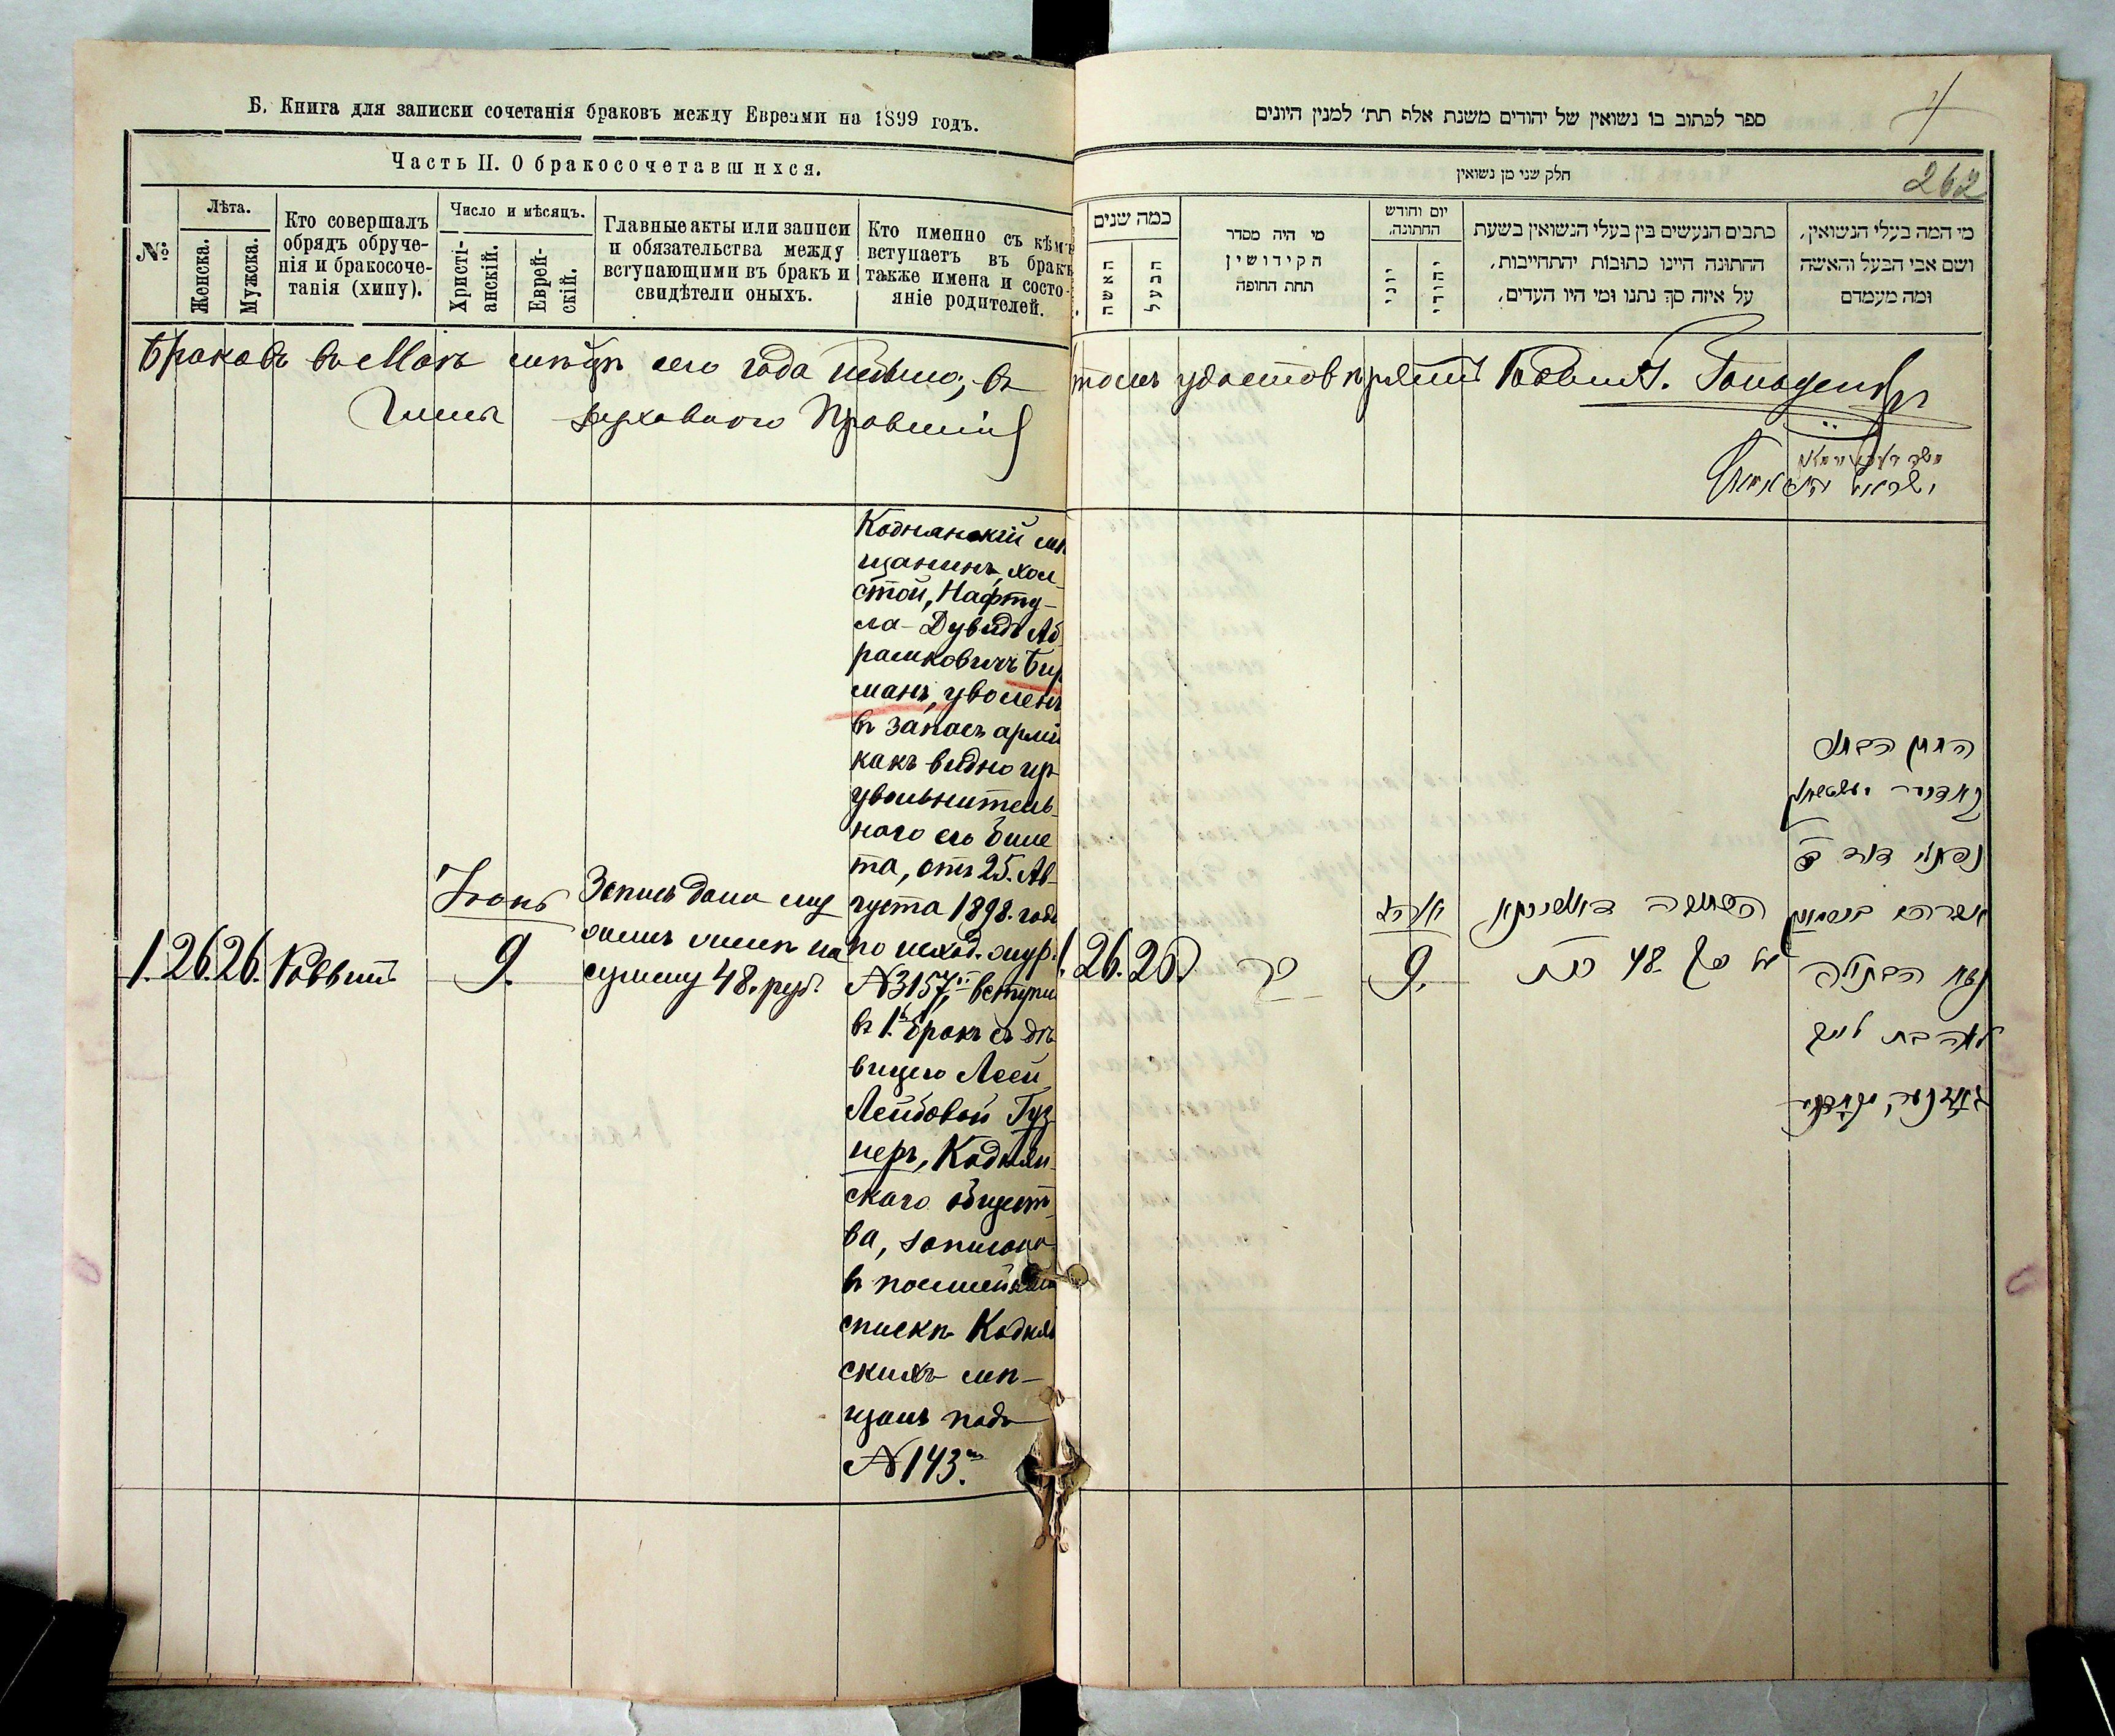 Б. Книга для записки сочетанія браковъ между Евреями на 1899 годъ.
Часть II. О бракосочетавшихся.
№
Лѣта.
Женска.
Мужска.
Кто совершалъ
обрядъ обруче-
нія и бракосоче-
танія (хипу).
Число и мѣсяцъ.
Христі-
анскій.
Еврей-
скій.
Главные акты или записи
и обязательства между
вступающими въ бракъ и
свидѣтели оныхъ.
Кто именно съ кѣмъ
вступаетъ въ бракъ
также имена и состо-
яніе родителей.
Браковъ въ Маѣ мѣсяцѣ сего года небыло, въ
духовного Правленія
1. 26. 26. Раввинъ
Іюнь
9.
Запись дана
сумму 48. руб.
Коднянскій мѣ
щанинъ, холо
стой, Нафту-
ла-Дувидъ Аб
рамковичъ Бир
манъ, уволенъ
въ запасъ арміи
какъ видно изъ
увольнитель
наго его биле
та, отъ 25. Ав-
густа 1898. года
по исход. жур.
№3157, вступи
въ 1. бракъ съ дѣ
вицею Леей
Лейбовой Гуз
неръ, Коднян
скаго общест
ва, записана
въ посемейномъ
спискѣ Коднян
скихъ мѣ-
щанъ подъ
№143.
ספר לכתוב בו נשואין של יהודים משנת אלף תת׳ למנין היונים
262
חלק שני מן נשואין
כמה שנים
האשה
הבעל
מי היה מסדר
הקידושין
תחת החופה
יום וחודש
החתונה.
יוני
יהודי
כתבים הנעשים בין בעלי הנשואין בשעת
ההתונה היינו כתובות יהתחייבות,
על איזה סך נתנו ומי היו העדים,
מי המה בעלי הנשואין,
ושם אבי הבעל והאשה
ומה מעמדם
томъ удостовѣряетъ Раввинъ.
1. 26. 26
רב
9.
על סך 48 רוכ
החתן הבחור
נפתלי דוד ב
נשא הבתולה
לאה בת לייב